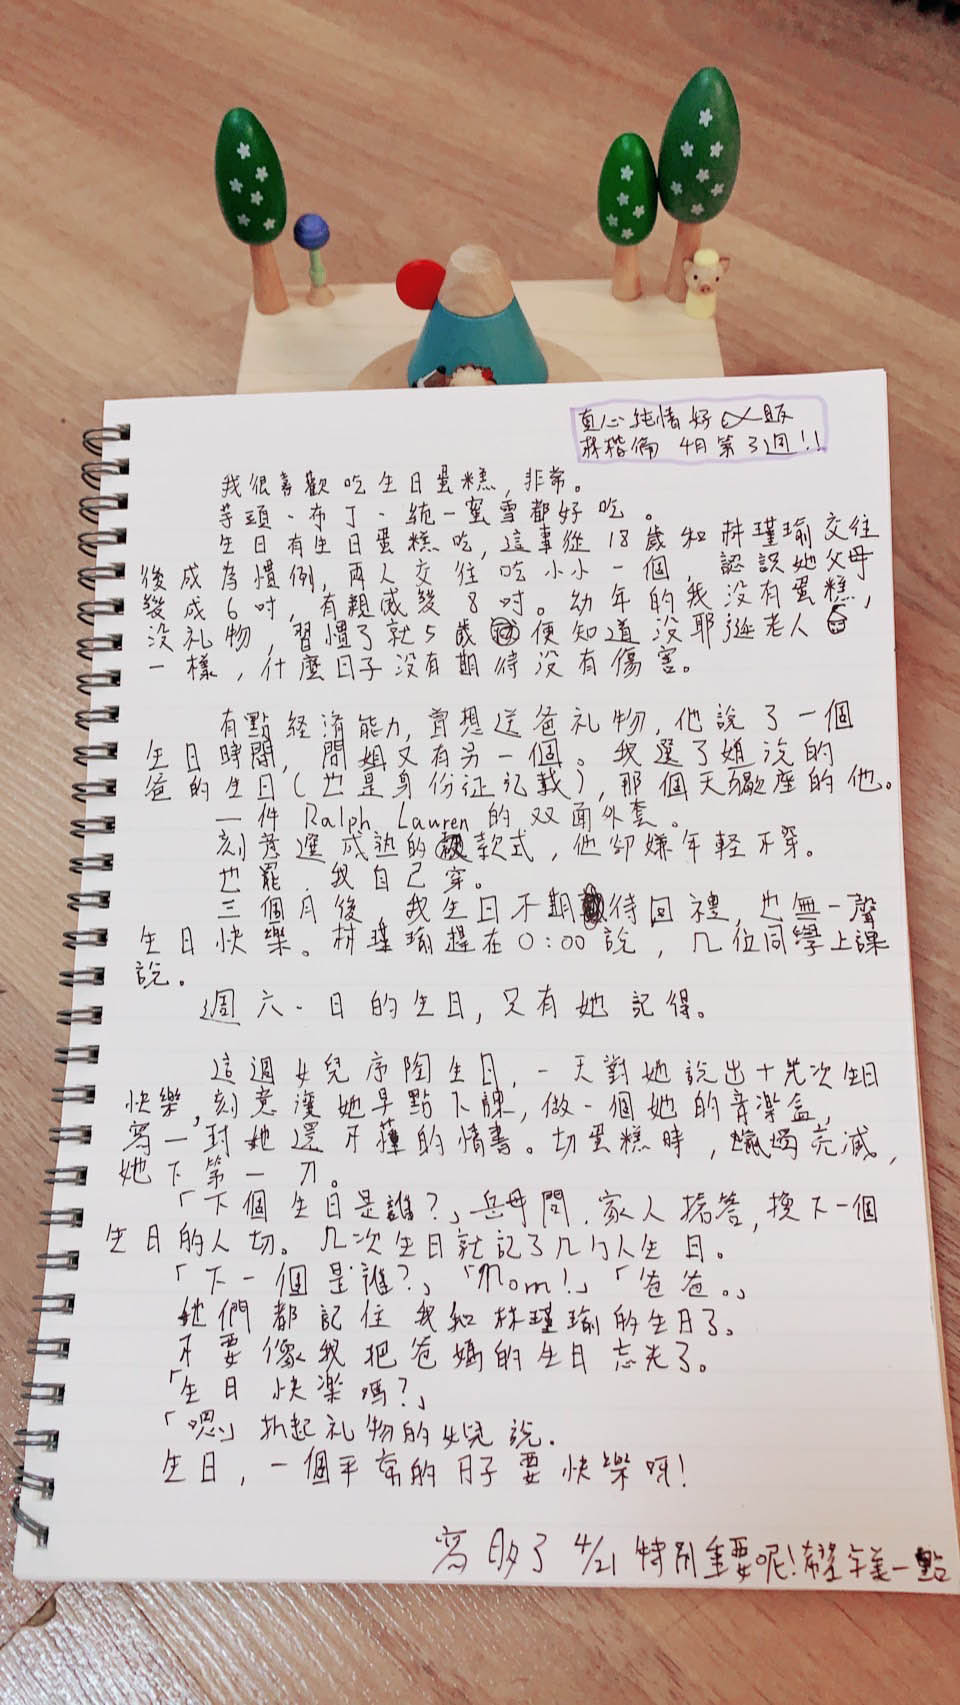 真心純情好 販
林楷倫 4月第3週!!
我很喜歡吃生日蛋糕，非常。
芋頭、布丁、統一蜜雪都好吃。
生日有生日蛋糕吃，這事從18歲和林瑾瑜交往
後成為慣例，兩人交往吃小小一個，認識她父母
後成6吋，有親戚後8吋。幼年的我沒有蛋糕，
沒礼物，習慣了就5歲便知道沒耶誕老人
一樣，什麼日子沒有期待沒有傷害。
有點經濟能力，曾想送爸礼物，他說了一個
生日時間，問姐又有另一個。我選了姐說的
爸的生日(也是身份证记载)，那個天蠍座的他。
一件 Ralph Lauren 的双面外套。
刻意選成熟的款式，他卻嫌年輕不穿。
也罷，我自己穿。
三個月後，我生日不期待回禮，也無一聲
生日快樂。林瑾瑜趕在0:00說，几位同學上課
說。
週六、日的生日，只有她記得。
這週女兒序陶生日，一天對她說出十幾次生日
快樂，刻意讓她早點下課，做一個她的音楽盒，
寫一封她還不懂的情書。切蛋糕時，蠟燭亮滅，
她下第一刀。
「下個生日是誰?」岳母問，家人搶答，換下一個
生日的人切。几次生日就記了几个人生日。
「下一個是誰?」「Mom!」「爸爸。」
她們都記住我和林瑾瑜的生日了。
不要像我把爸媽的生日忘光了。
「生日快楽嗎?」
「嗯」扒起礼物的女兒說.
生日，一個平常的日子要快樂呀!
寫 了 4/21 特別重要呢! 一點